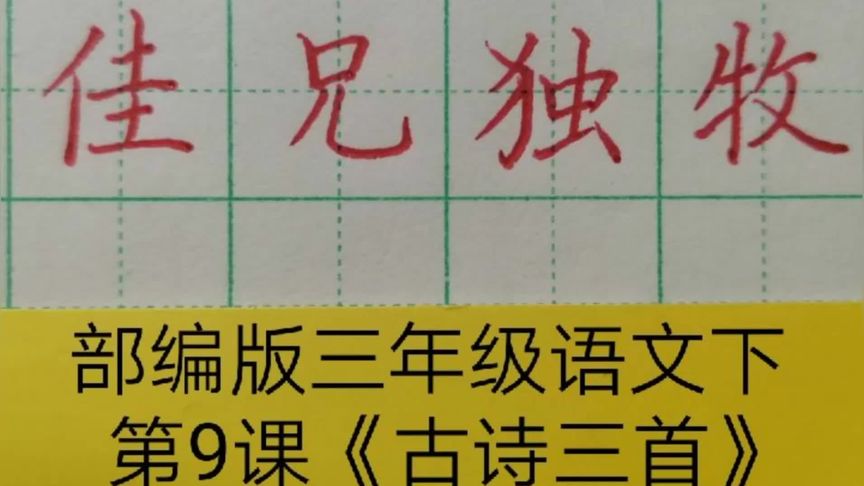 佳兄独牧
部编版三年级语文下
第9课《古诗三首》